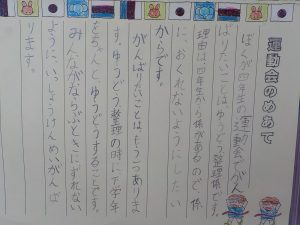 運動会のめあて
ぼくが四年生の運動会でがん
ばりたいことは、ゆうどう整理係です。
理由は四年生から係があるので、係
に、おくれないようにしたい
からです。
がんばりたいことはもう一つありま
す。ゆうどう整理の時に下学年
をちゃんと、ゆうどうすることです。
みんながならぶときにずれない
ように、いっしょうけんめいがんば
ります。